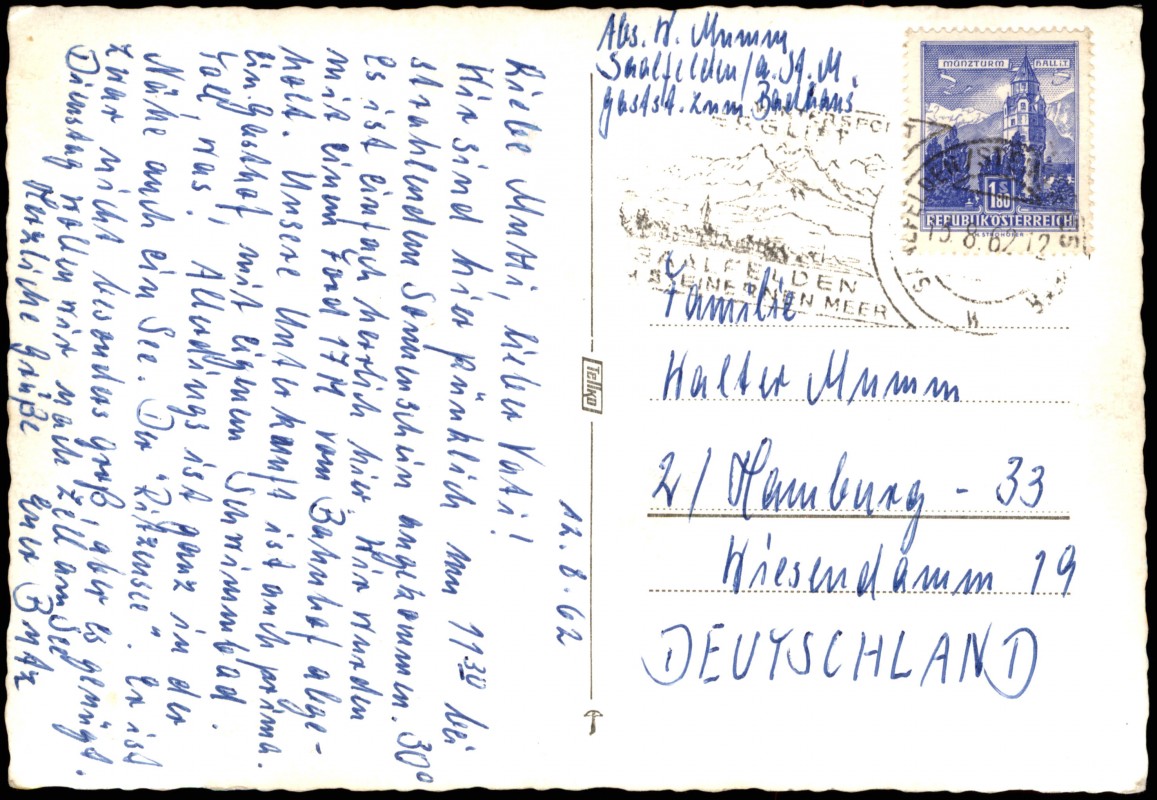 12.8.62
Liebe Mutti, lieber Vati!
Wir sind hier pünklich um 11 30 bei
strahlendem Sonnenschein angekommen. 30°
es ist einfach herlich hier. Wir wurden
mit einem Ford 17M vom Bahnhof abge-
holt. Unsere Unterkunft ist auch prima.
Ein Gasthof mit eigenem Schwimmbad.
Toll was! Allerdings ist ganz in der
Nähe auch ein See. Der "Ritzensee". Er ist
zwar nicht besonders groß aber es genügt.
Dienstag wollen wir nach Zell am See
Herzliche Grüße Euer Butz
Tellko
Abs. W. Mumm
Saalfelden/a. St. M.
Gastst. zum Badhaus
MÜNZTURM HALL I.T.
1S 80
REPUBLIK ÖSTERREICH
SAALFELDEN
AM STEINERNEN MEER
SAALFELDEN
13.8.62.12
Familie
Walter Mumm
2/ Hamburg - 33
Wiesendamm 19
DEUTSCHLAND